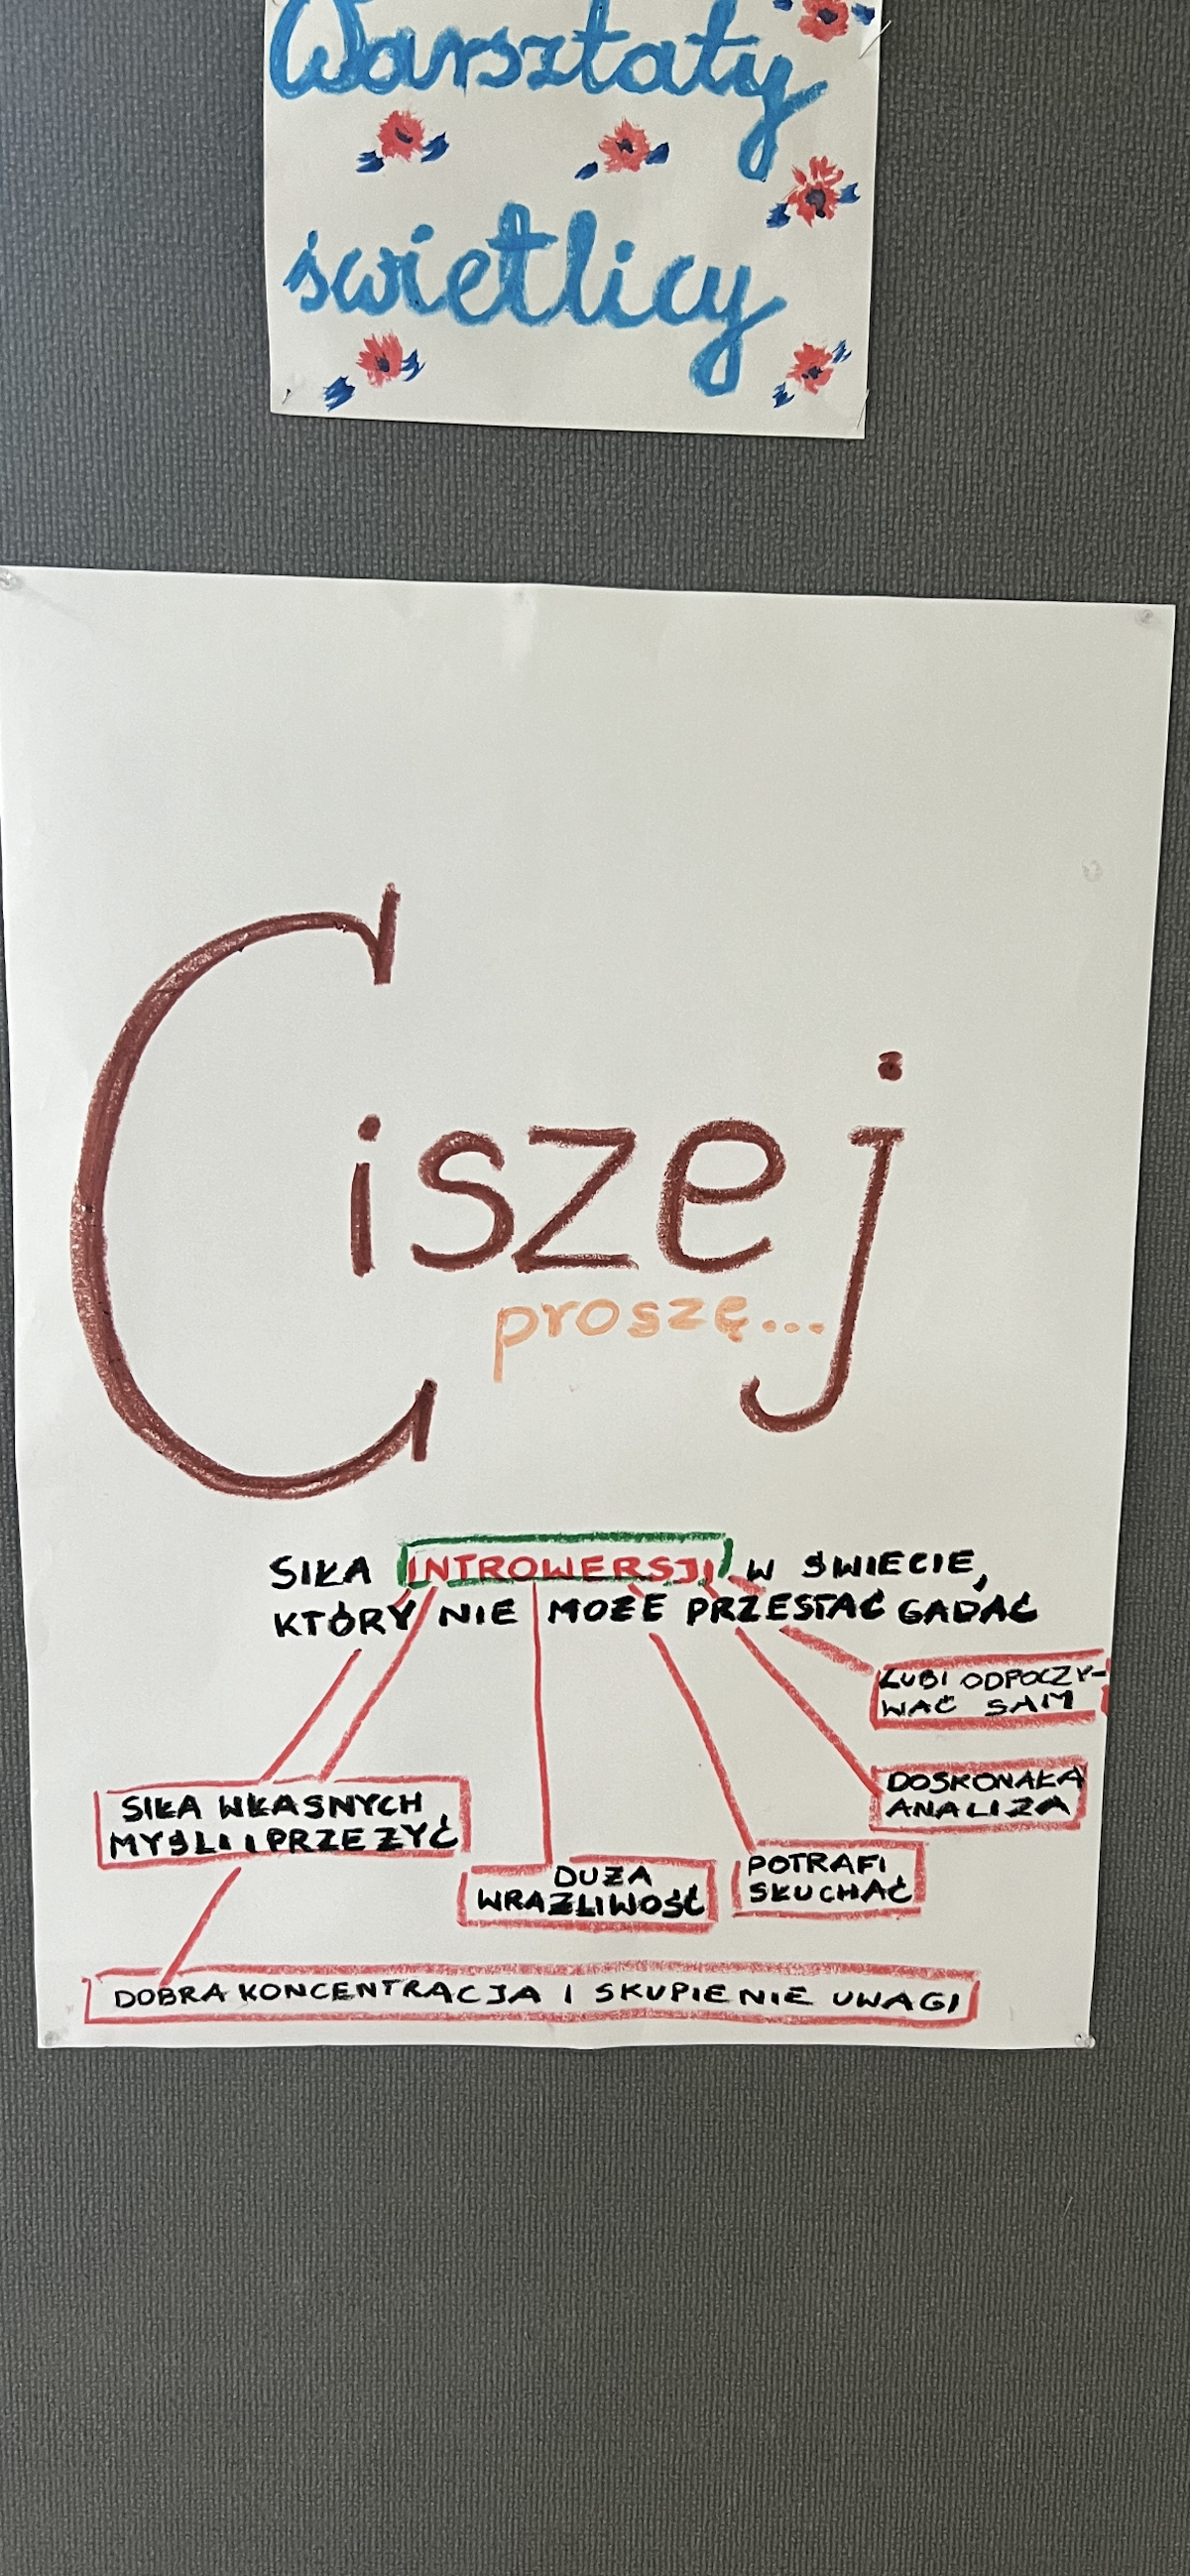 Warsztaty
świetlicy
Ciszej
proszę...
SIŁA INTROWERSJI W ŚWIECIE,
KTÓRY NIE MOŻE PRZESTAĆ GADAĆ
LUBI ODPOCZY-
WAĆ SAM
DOSKONAŁA
ANALIZA
SIŁA WŁASNYCH
MYŚLI I PRZEŻYĆ
DUŻA
WRAŻLIWOŚĆ
POTRAFI
SŁUCHAĆ
DOBRA KONCENTRACJA I SKUPIENIE UWAGI